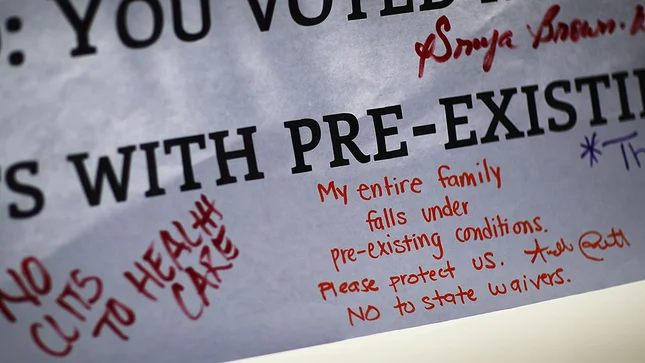 : YOU VOTED
& Sonya Brown
S WITH PRE-EXISTIN
* Th
My entire family
falls under
pre-existing conditions.
Please protect us.
NO to state waivers.
NO
CUTS
TO HEALTH
CARE